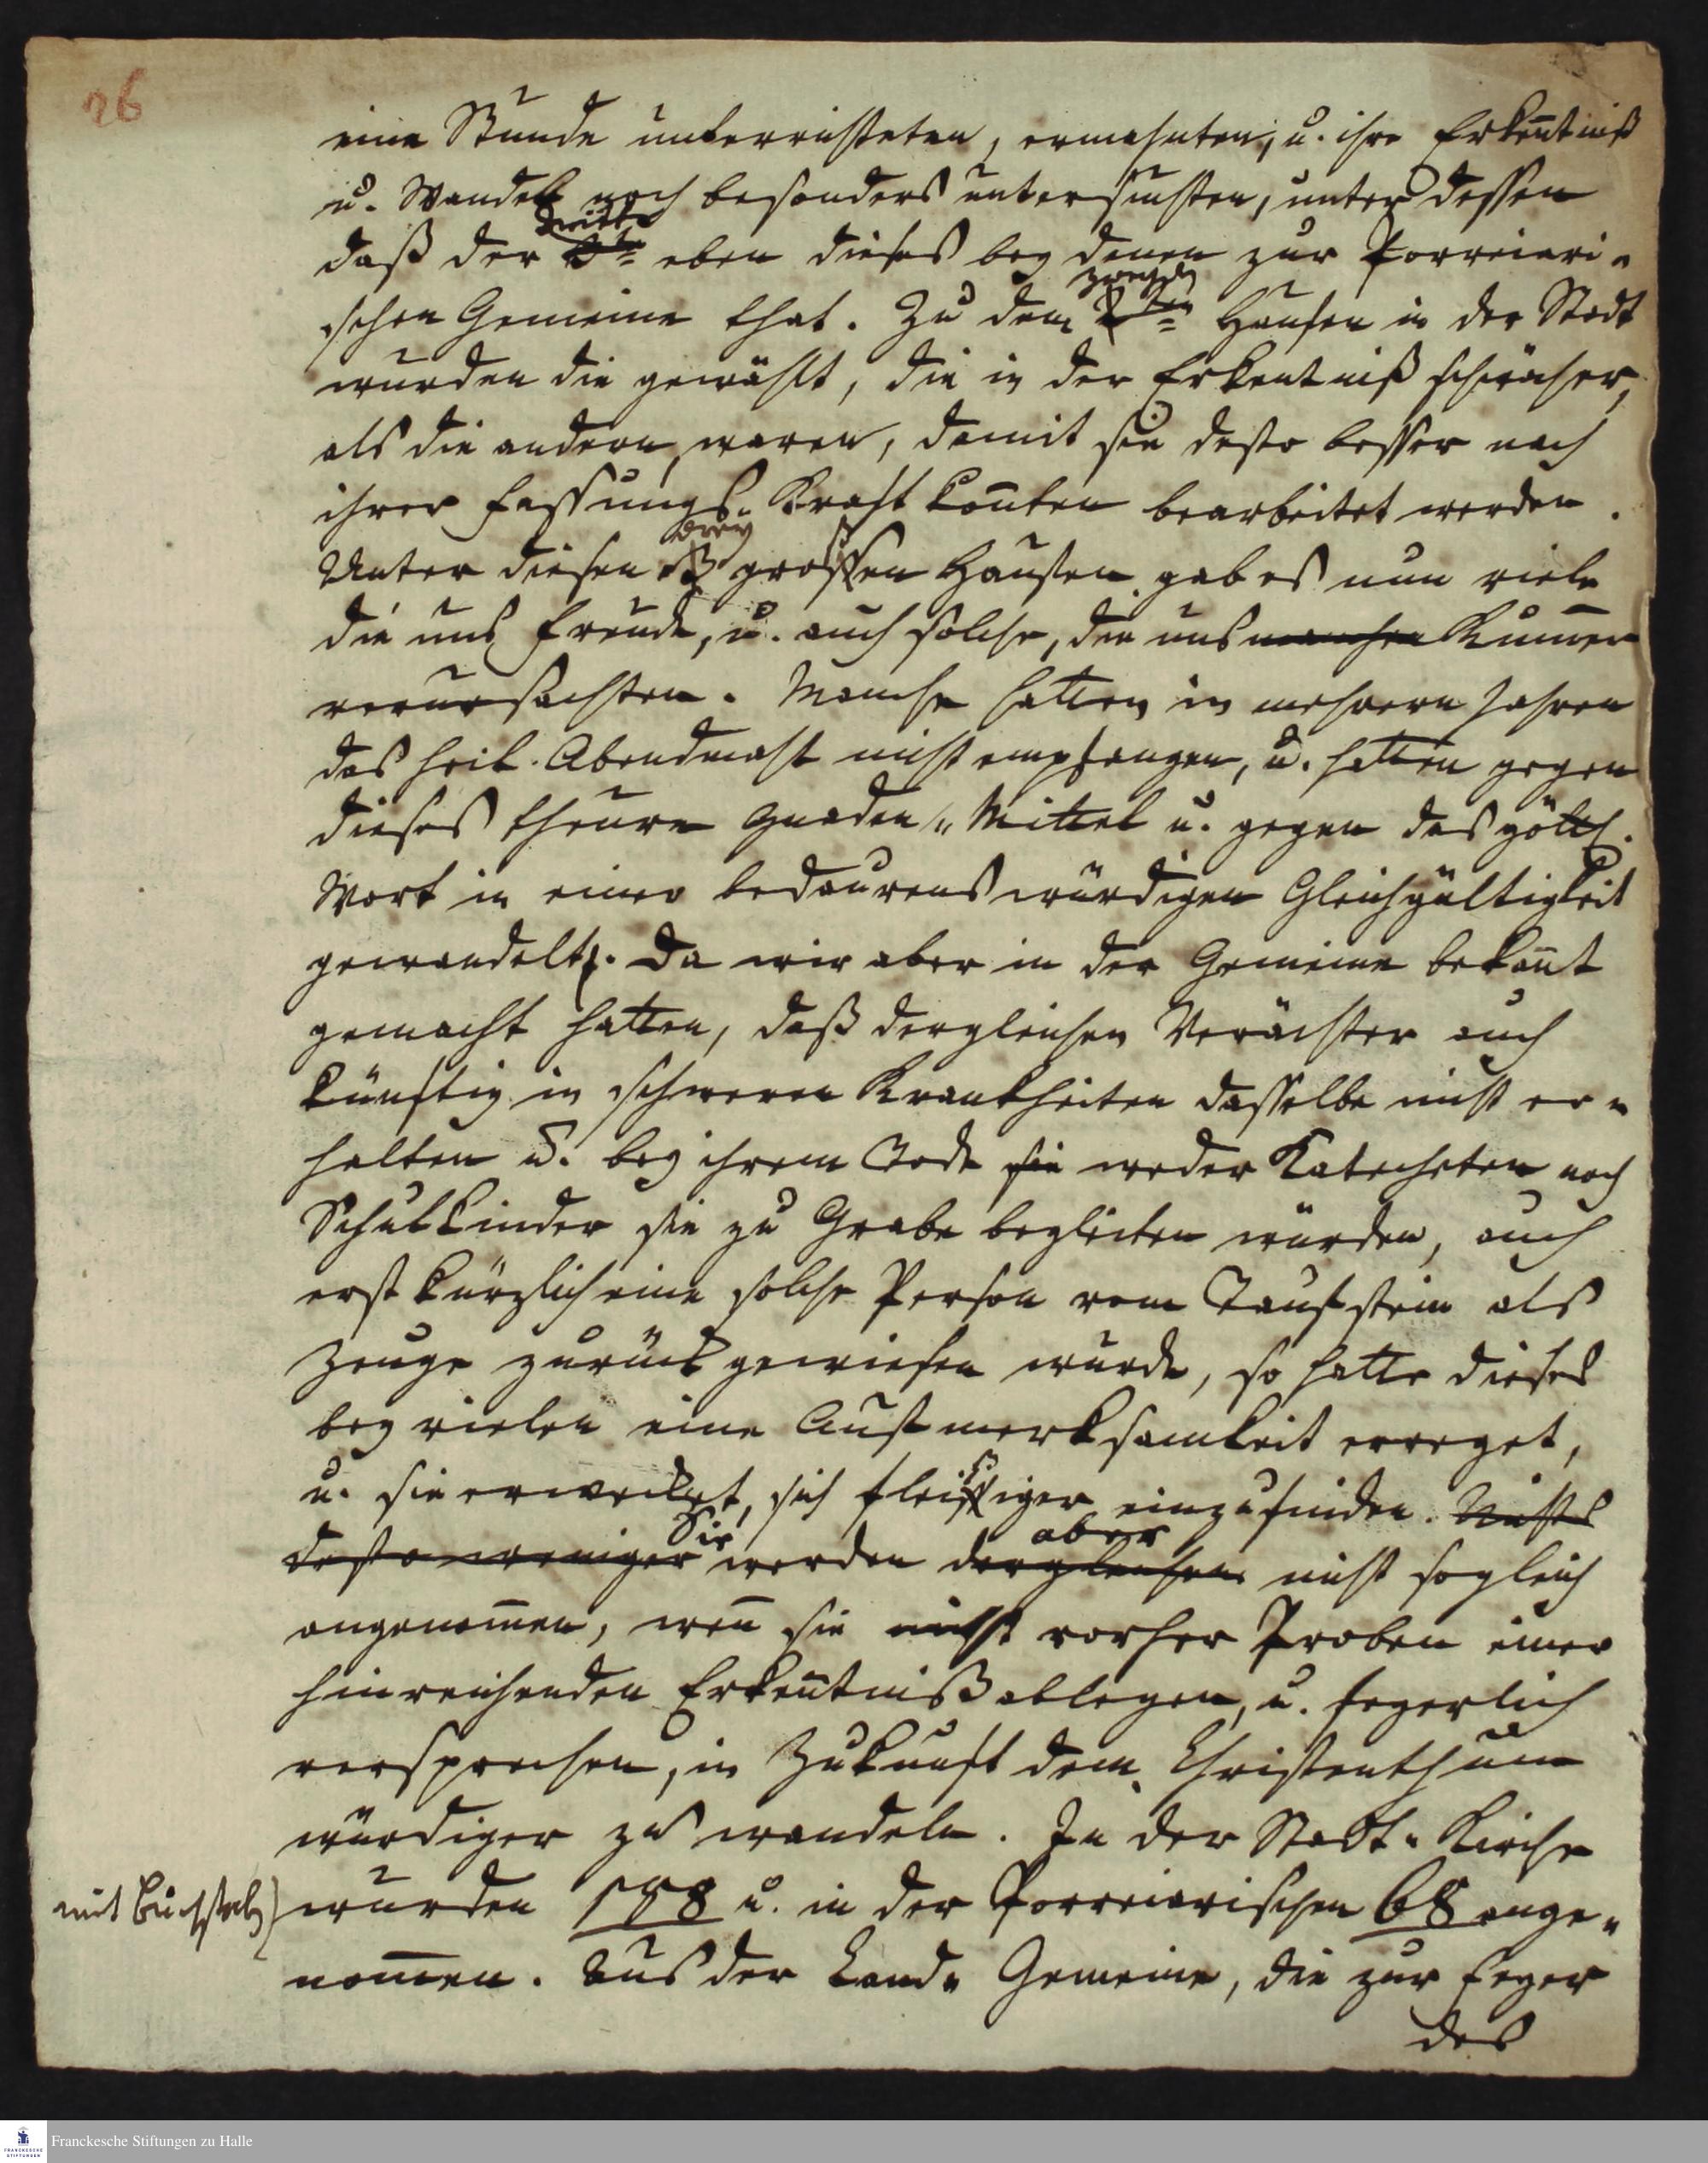 26
eine Stunde unterrichteten, ermahnten, u. ihre Erken̄tniß
u. Wandel noch besonders untersuchten, unter dessen
dritte
daß der 3te eben dieses bey denen zur Porreiari-
zweyten
schen Gemeine that. Zu dem 2ten Haufen in der Stadt
wurden die gewählt, die in der Erkentniß schwächer,
als die andern waren, damit sie desto besser nach
ihrer Fassungs-Kraft kon̄ten bearbeitet werden.
drey
Unter diesen 3 grossen Haufen gab es nun viele
die uns Freude, u. auch solche, die uns manchen Kum̄er
verursachten. Manche hatten in mehrern Jahren
das heil. Abendmahl nicht empfangen, u. hatten gegen
dieses theure Gnaden-Mittel u. gegen das göttl.
Wort in einer bedaurenswürdigen Gleichgültigkeit
gewandelt. Da wir aber in der Gemeine bekan̄t
gemacht hatten, daß dergleichen Verächter auch
künftig in schweren Krankheiten dasselbe nicht er-
halten u. bey ihrem Tode sie weder Katecheten noch
Schulkinder sie zu Grabe begleiten würden, auch
erst kürzlich eine solche Person vom Taufstein als
Zeuge zurück gewiesen wurde, so hatte dieses
bey vielen eine Aufmerksamkeit erreget,
u. sie erwecket, sich fleissiger einzufinden. Nichts
Sie aber
desto weniger werden dergleichen nicht sogleich
angenom̄en, wen̄ sie nicht vorher Proben einer
hinreichenden Erken̄tniß ablegen, u. feyerlich
versprechen, in Zukunft dem Christenthum
würdiger zu wandeln. In der Stadt-Kirche
mit Buchstab) wurden 158 u. in der Porreiarischen 68 ange-
nom̄en. Aus der Land-Gemeine, die zur Feyer
des
FRANCKESCHE STIFTUNGEN
Franckesche Stiftungen zu Halle